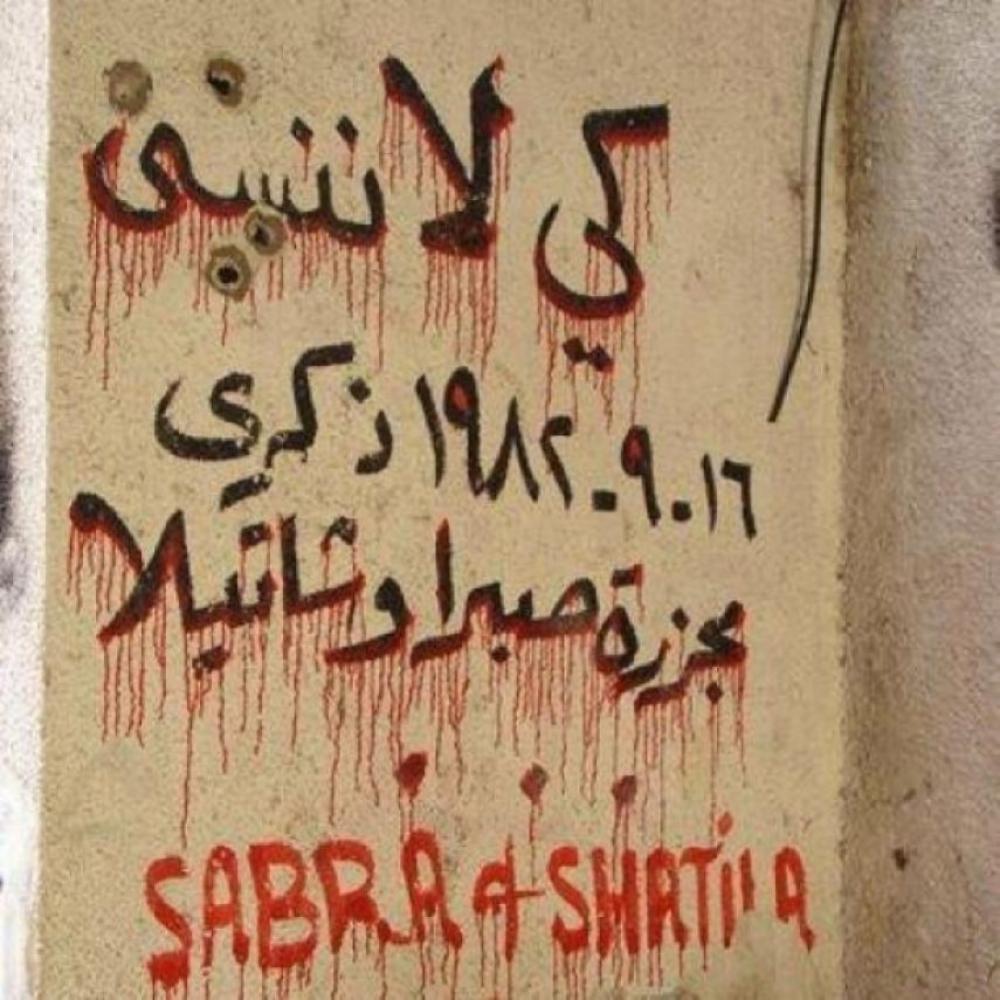 كي لا ننسى
١٩٨٢.٩.١٦ ذكرى
مجزرة صبرا وشاتيلا
SABRA & SHATILA